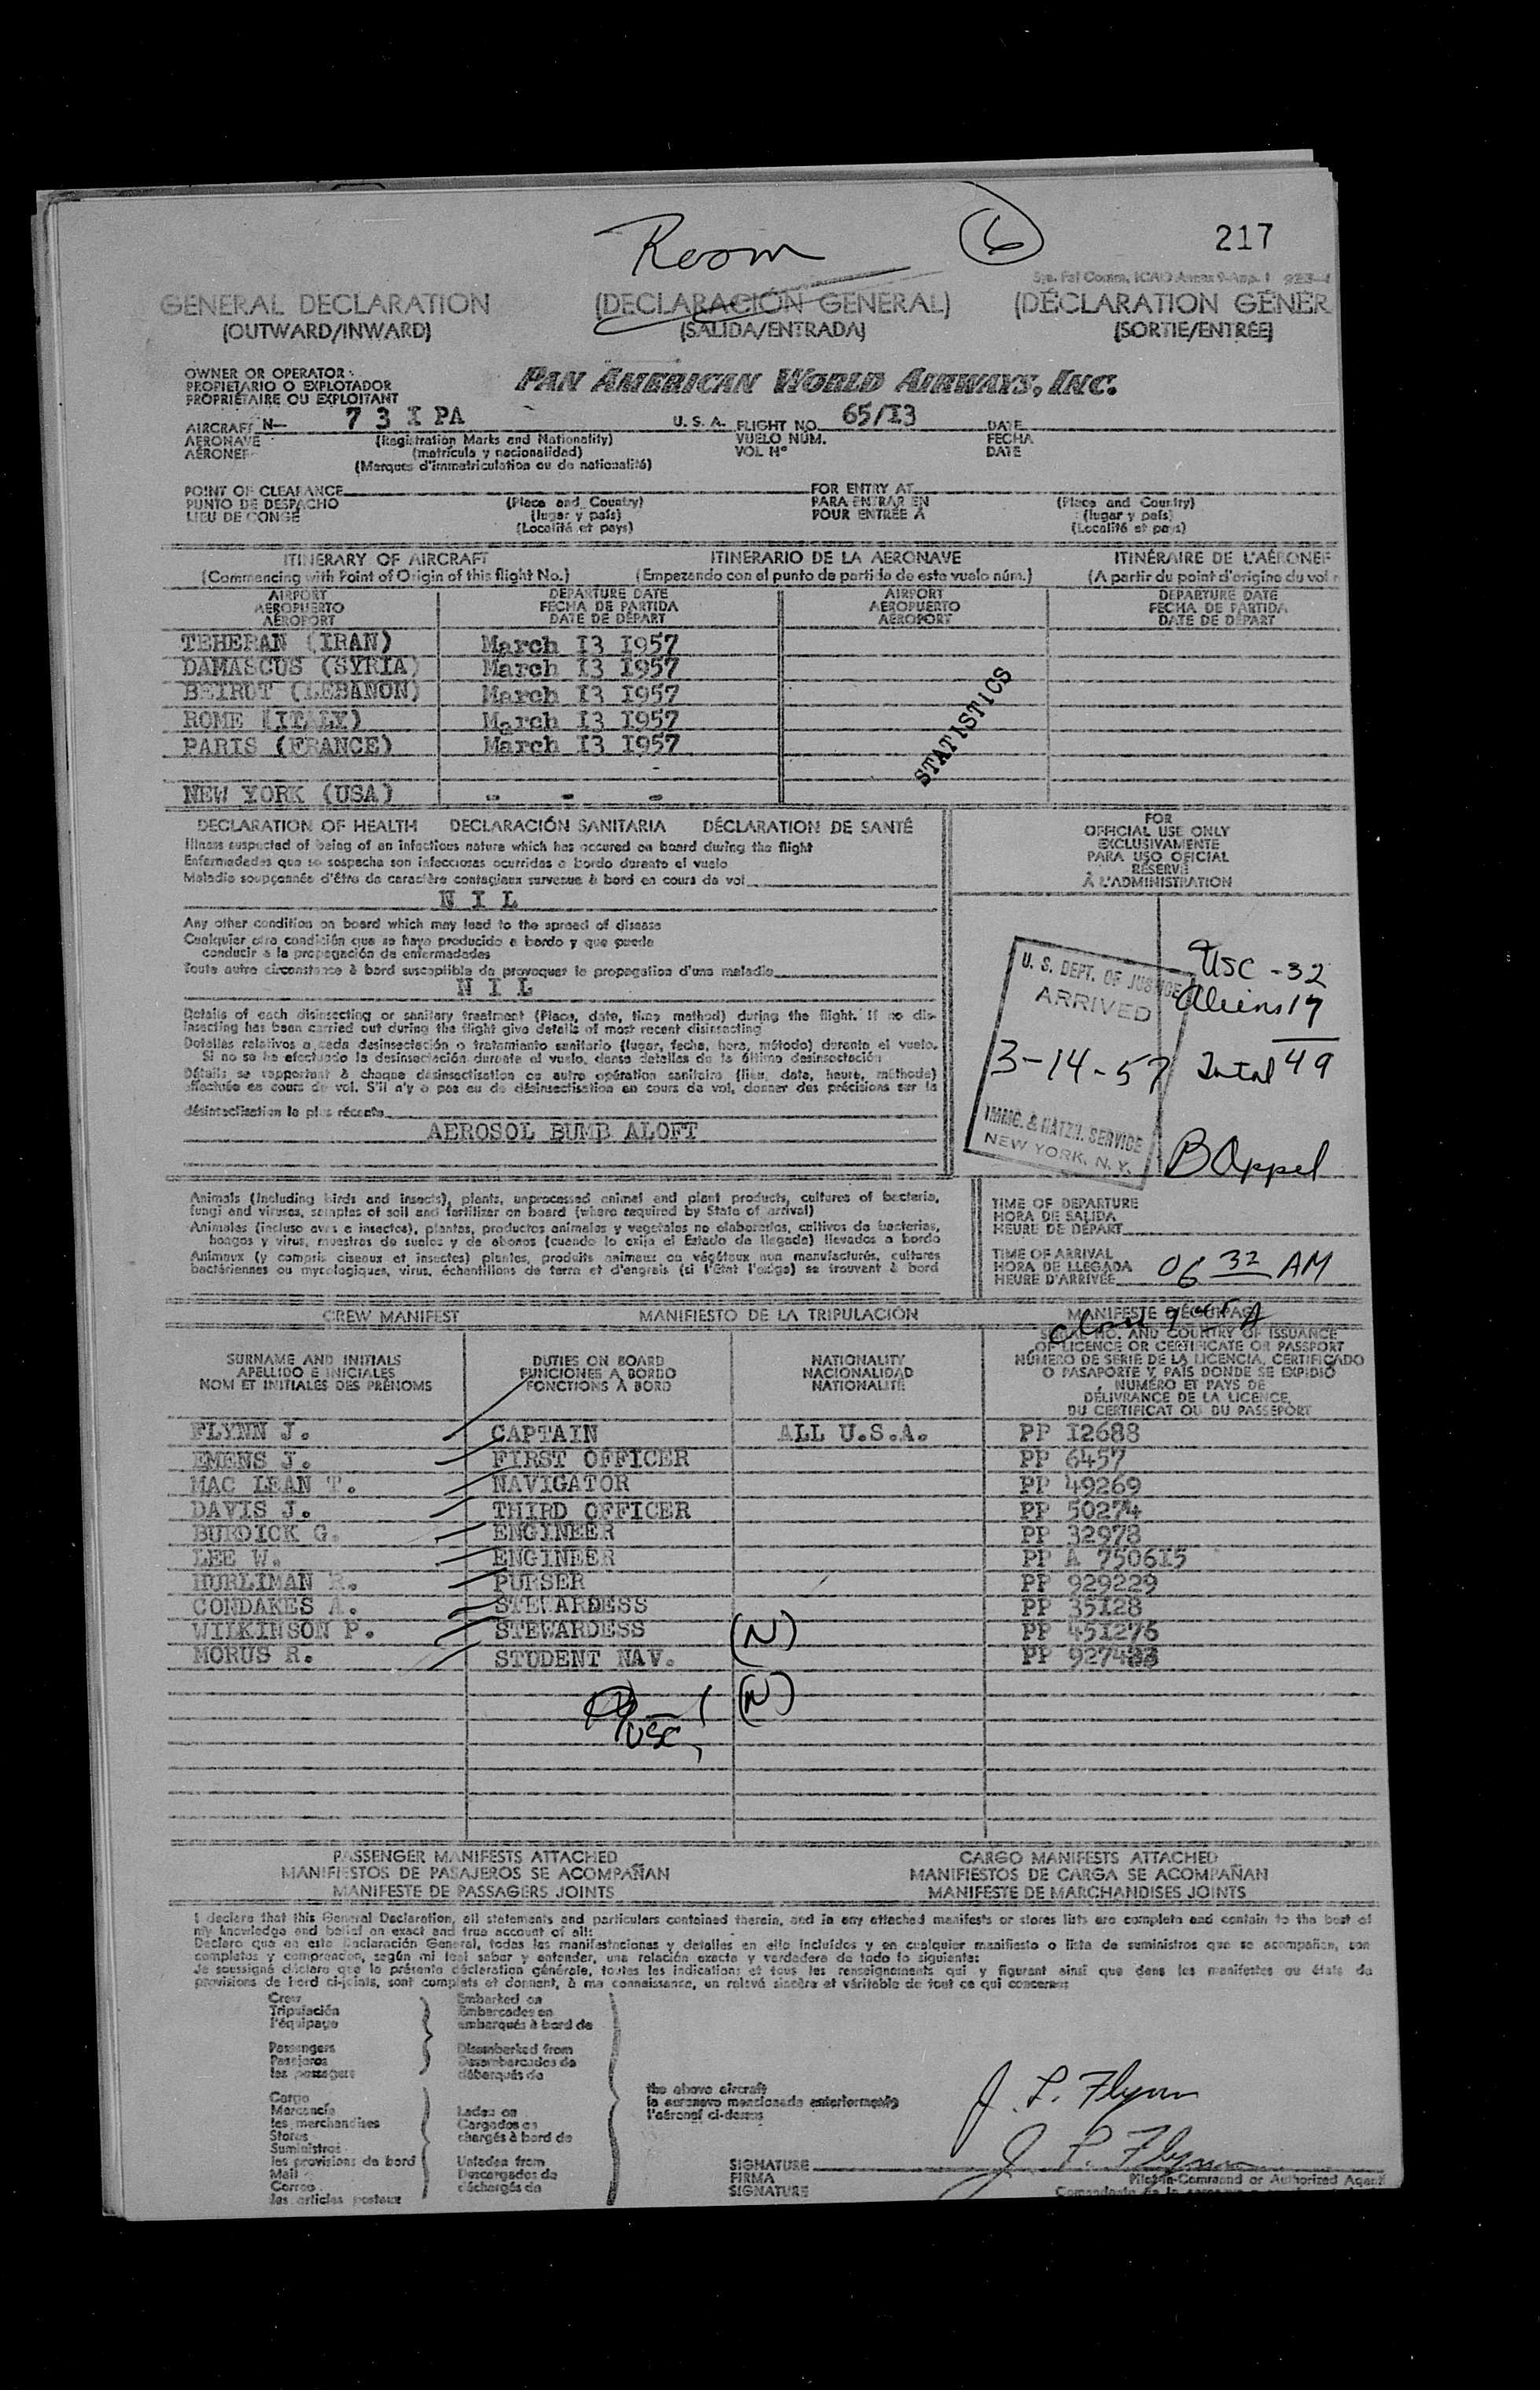 Room 6 217
GENERAL DECLARATION (DECLARACIÓN GENERAL) (DÉCLARATION GÉNÉR
(OUTWARD/INWARD) (SALIDA/ENTRADA) (SORTIE/ENTRÉE)
OWNER OR OPERATOR
PROPIETARIO O EXPLOTADOR
PROPRIÉTAIRE OU EXPLOITANT
PAN AMERICAN WORLD AIRWAYS, INC.
AIRCRAFT N- 7 3 I PA U. S. A. FLIGHT NO. 65/I3 DATE
AERONAVE (Registration Marks and Nationality) VUELO NÚM. FECHA
AÉRONEF (matrícula y nacionalidad) VOL Nº DATE
(Marques d'immatriculation ou de nationalité)
POINT OF CLEARANCE FOR ENTRY AT
PUNTO DE DESPACHO (Place and Country) PARA ENTRAR EN (Place and Country)
LIEU DE CONGÉ (lugar y país) POUR ENTRÉE À (lugar y país)
(Localité et pays) (Localité et pays)
ITINERARY OF AIRCRAFT ITINERARIO DE LA AERONAVE ITINÉRAIRE DE L'AÉRONEF
(Commencing with Point of Origin of this flight No.) (Empezando con el punto de partida de este vuelo núm.) (A partir du point d'origine du vol n
AIRPORT DEPARTURE DATE AIRPORT DEPARTURE DATE
AEROPUERTO FECHA DE PARTIDA AEROPUERTO FECHA DE PARTIDA
AÉROPORT DATE DE DÉPART AÉROPORT DATE DE DÉPART
TEHERAN (IRAN) March I3 I957
DAMASCUS (SYRIA) March I3 I957
BEIRUT (LEBANON) March I3 I957
ROME (ITALY) March I3 I957
PARIS (FRANCE) March I3 I957
STATISTICS
NEW YORK (USA) - - -
DECLARATION OF HEALTH DECLARACIÓN SANITARIA DÉCLARATION DE SANTÉ
Illness suspected of being of an infectious nature which has occured on board during the flight
Enfermedades que se sospecha son infecciosas ocurridas a bordo durante el vuelo
Maladie soupçonnée d'être de caractère contagieux survenue à bord en cours de vol
N I L
Any other condition on board which may lead to the spread of disease
Cualquier otra condición que se haya producido a bordo y que puede
conducir a la propagación de enfermedades
Toute autre circonstance à bord susceptible de provoquer la propagation d'une maladie
N I L
Details of each disinsecting or sanitary treatment (Place, date, time method) during the flight. If no dis-
insecting has been carried out during the flight give details of most recent disinsecting
Detalles relativos a cada desinsectación o tratamiento sanitario (lugar, fecha, hora, método) durante el vuelo.
Si no se ha efectuado la desinsectación durante el vuelo, dense detalles de la última desinsectación
Détails se rapportant à chaque désinsectisation ou autre opération sanitaire (lieu, date, heure, méthode)
effectuée en cours de vol. S'il n'y a pas eu de désinsectisation en cours de vol, donner des précisions sur la
désinsectisation la plus récente
AEROSOL BUMB ALOFT
FOR
OFFICIAL USE ONLY
EXCLUSIVAMENTE
PARA USO OFICIAL
RÉSERVÉ
À L'ADMINISTRATION
U. S. DEPT. OF JUSTICE
ARRIVED
3-14-57
IMMIG. & NATZN. SERVICE
NEW YORK, N. Y.
USC - 32
Aliens 17
Total 49
B Appel
Animals (including birds and insects), plants, unprocessed animal and plant products, cultures of bacteria,
fungi and viruses, samples of soil and fertilizer on board (where required by State of arrival)
Animales (incluso aves e insectos), plantas, productos animales y vegetales no elaborados, cultivos de bacterias,
hongos y virus, muestras de suelos y de abonos (cuando lo exija el Estado de llegada) llevados a bordo
Animaux (y compris oiseaux et insectes) plantes, produits animaux ou végétaux non manufacturés, cultures
bactériennes ou mycologiques, virus, échantillons de terre et d'engrais (si l'État l'exige) se trouvant à bord
TIME OF DEPARTURE
HORA DE SALIDA
HEURE DE DÉPART
TIME OF ARRIVAL
HORA DE LLEGADA
HEURE D'ARRIVÉE 06 32 AM
CREW MANIFEST MANIFIESTO DE LA TRIPULACIÓN MANIFESTE D'ÉQUIPAGE
SURNAME AND INITIALS
APELLIDO E INICIALES
NOM ET INITIALES DES PRÉNOMS
DUTIES ON BOARD
FUNCIONES A BORDO
FONCTIONS À BORD
NATIONALITY
NACIONALIDAD
NATIONALITÉ
SERIAL NO. AND COUNTRY OF ISSUANCE
OF LICENCE OR CERTIFICATE OR PASSPORT
NÚMERO DE SERIE DE LA LICENCIA, CERTIFICADO
O PASAPORTE Y PAÍS DONDE SE EXPIDIÓ
NUMÉRO ET PAYS DE
DÉLIVRANCE DE LA LICENCE,
DU CERTIFICAT OU DU PASSEPORT
FLYNN J. CAPTAIN ALL U.S.A. PP I2688
EMENS J. FIRST OFFICER PP 6457
MAC LEAN T. NAVIGATOR PP 49269
DAVIS J. THIRD OFFICER PP 50274
BURDICK G. ENGINEER PP 32978
LEE W. ENGINEER PP A 7506I5
HURLIMAN R. PURSER PP 929229
CONDAKES A. STEWARDESS PP 35I28
WILKINSON P. STEWARDESS (N) PP 45I276
MORUS R. STUDENT NAV. PP 927433
(N)
USC
PASSENGER MANIFESTS ATTACHED CARGO MANIFESTS ATTACHED
MANIFIESTOS DE PASAJEROS SE ACOMPAÑAN MANIFIESTOS DE CARGA SE ACOMPAÑAN
MANIFESTE DE PASSAGERS JOINTS MANIFESTE DE MARCHANDISES JOINTS
I declare that this General Declaration, all statements and particulars contained therein, and in any attached manifests or stores lists are complete and contain to the best of
my knowledge and belief an exact and true account of all:
Declaro que en esta Declaración General, todas las manifestaciones y detalles en ella incluídos y en cualquier manifiesto o lista de suministros que se acompañen, son
completos y comprenden, según mi leal saber y entender, una relación exacta y verdadera de todo lo siguiente:
Je soussigné déclare que la présente déclaration générale, toutes les indications et tous les renseignements qui y figurent ainsi que dans les manifestes ou états de
provisions de bord ci-joints, sont complets et donnent, à ma connaissance, un relevé sincère et véritable de tout ce qui concerne:
Crew Embarked on
Tripulación Embarcados en
l'équipage embarqués à bord de
Passengers Disembarked from
Pasajeros Desembarcados de
les passagers débarqués de
Cargo
Mercancía Laden on
les marchandises Cargados en
Stores chargés à bord de
Suministros
les provisions de bord Unladen from
Mail Descargados de
Correo déchargés de
les articles postaux
the above aircraft
la aeronave mencionada anteriormente
l'aéronef ci-dessus
J. P. Flynn
SIGNATURE J. P. Flynn
FIRMA Pilot-in-Command or Authorized Agent
SIGNATURE